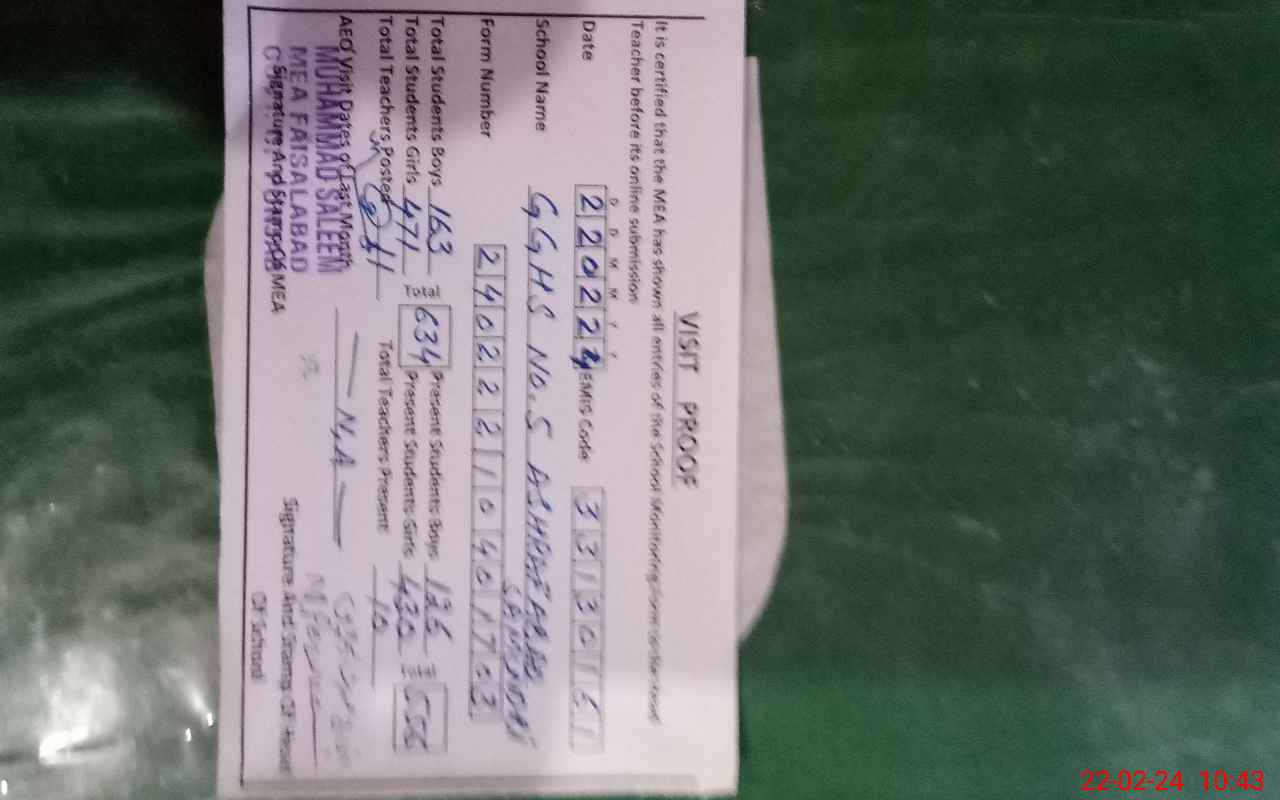 VISIT PROOF
It is certified that the MEA has shown all entries of the School Monitoring Form to the Head
Teacher before its online submission
D D M M Y Y
Date 220224 EMIS Code: 33130161
School Name GGHS NO.5 ASHRAFABAD
SAMUNDRI
Form Number 2402221040170
Total Students Boys 163 634 Present Students Boys 126 556
Total Students Girls 471 Present Students Girls 430
Total Teachers Posted 11 Total Teachers Present 10
AEO Visit Dates of Last Month — N.A —
MUHAMMAD SALEEM
MEA FAISALABAD
Signature And Stamp Of MEA Signature And Stamp Of Head
Of School
22-02-24 10:43